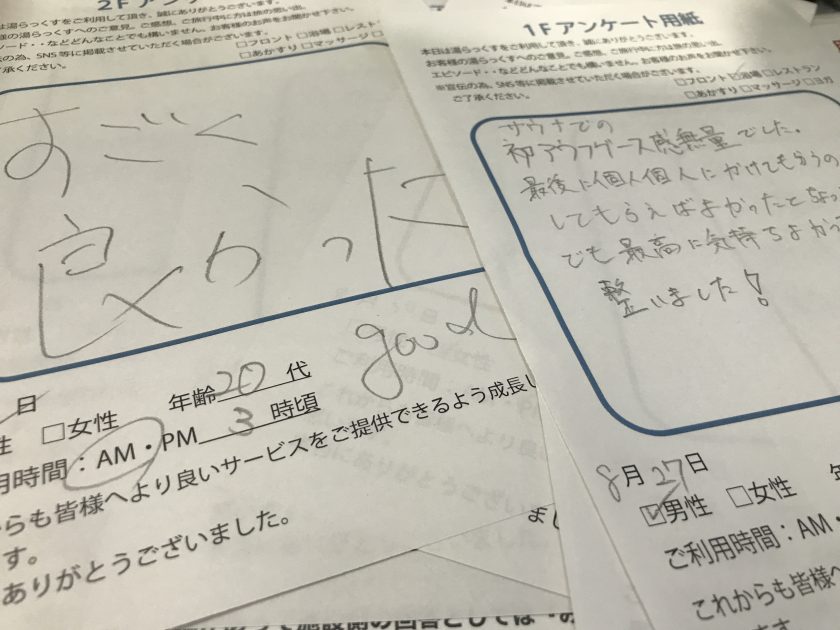 2F アン
は湯らっくすをご利用して頂き、誠にありがとうございます。
様の湯らっくすへのご意見。ご感想、ご旅行中に方は旅の思い出、
ソード・・などどんなことでも構いません。お客様のお声をお聞かせ下さい。
伝の為、SNS等に掲載させていただく場合がございます。
了承ください。
□フロント □浴場 □レスト
□あかすり □マッサージ
すごく
良かった
good
日
年齢 20 代
性 □女性
用時間：AM・PM 3 時頃
らも皆様へより良いサービスをご提供できるよう成長し
す。
ありがとうございました。
1F アンケート用紙
本日は湯らっくすをご利用して頂き、誠にありがとうございます。
お客様の湯らっくすへのご意見。ご感想、ご旅行中に方は旅の思い出、
エピソード・・などどんなことでも構いません。お客様のお声をお聞かせ下さい。
※宣伝の為、SNS等に掲載させていただく場合がございます。
ご了承ください。
□フロント □浴場 □レストラン
□あかすり □マッサージ □ヨガ
サウナでの
初アウフグース感無量でした。
最後に個人個人にかけてもらうの
してもらえばよかったとちょっ
でも最高に気持ちよかっ
整いました!
8月27日
☑男性 □女性
ご利用時間：AM・
これからも皆様へ